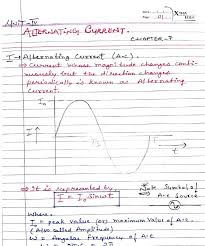 Unit-IV
ALTERNATING CURRENT.
CHAPTER-7
I → Alternating Current (A.C) :-
→ Current whose magnitude changes conti-
nuously but the direction changes
periodically is known as Alternating
Current.
I
I₀
t →
→ It is represented by
I = I₀ sin ωt
Symbol of
A.C source
where,
I = peak value (or) maximum value of A.C
(Also called Amplitude)
ω = Angular Frequency of A.C